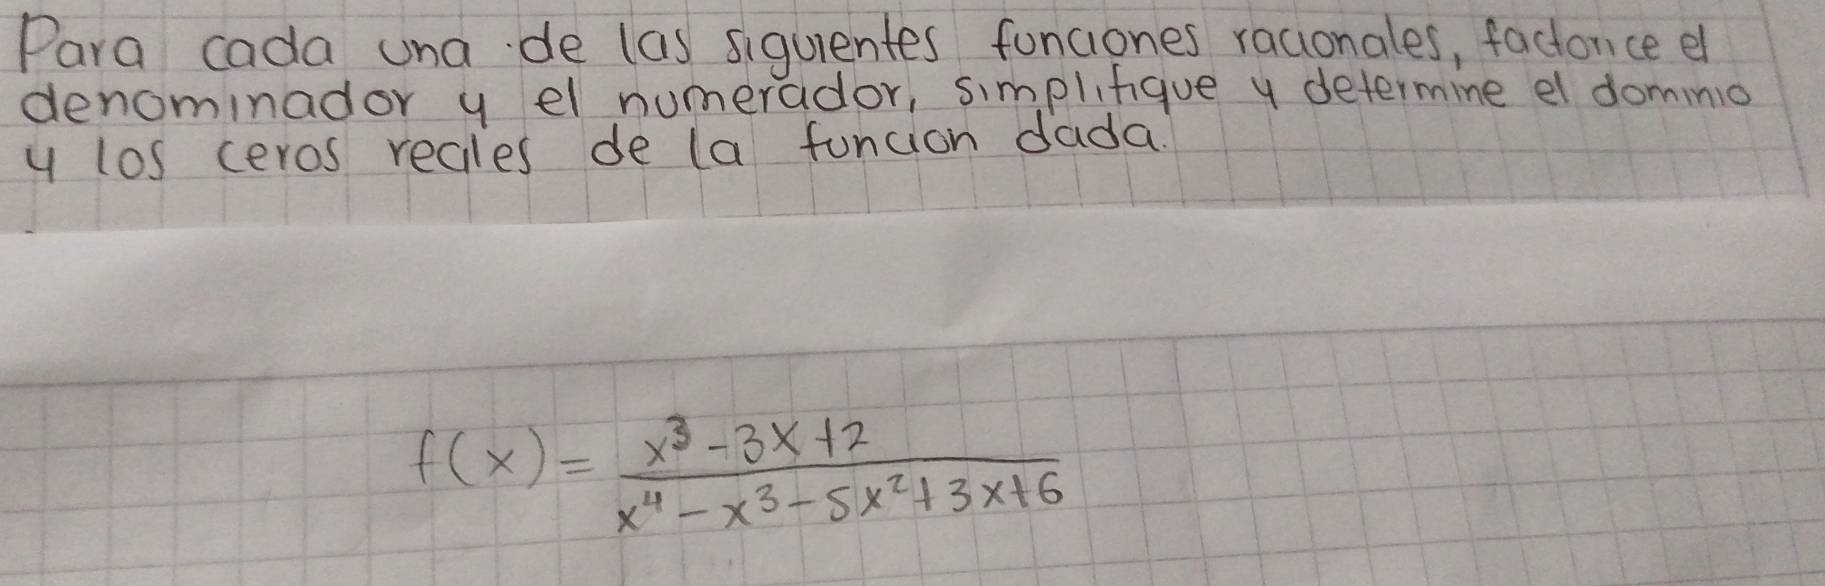 Para cada una de las siguientes funciones racionales, factorice el
denominador y el numerador, simplifique y determine el dominio
y los ceros reales de la funcion dada.
f(x) = \frac{x^3 - 3x + 2}{x^4 - x^3 - 5x^2 + 3x + 6}